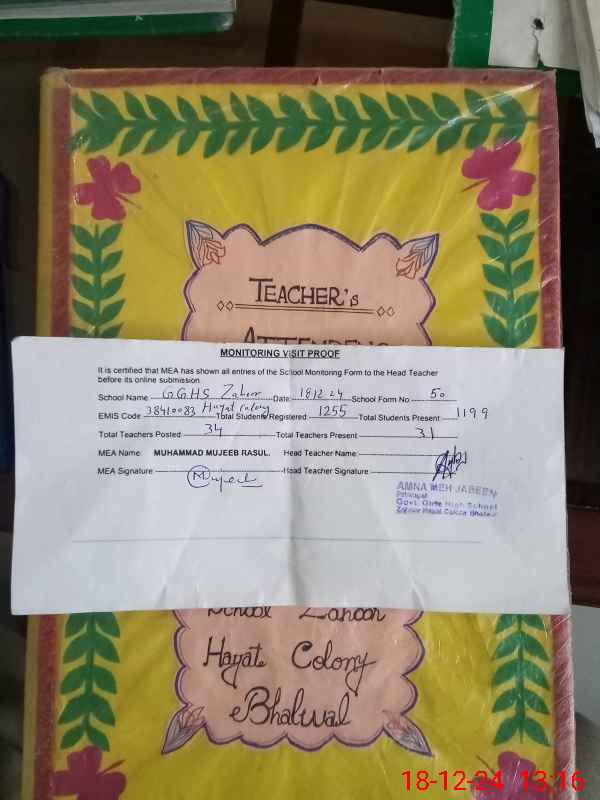 TEACHER's
MONITORING VISIT PROOF
It is certified that MEA has shown all entries of the School Monitoring Form to the Head Teacher
before its online submission.
School Name G.G.H.S Zahoor Date 18.12.24 School Form No 50
Hayat Colony
EMIS Code 38410083 Total Students Registered 1255 Total Students Present 1199
Total Teachers Posted 34 Total Teachers Present 31
MEA Name: MUHAMMAD MUJEEB RASUL. Head Teacher Name:
MEA Signature: Mujeeb Head Teacher Signature:
AMNA MEH JABEEN
Principal
Govt. Girls High School
Zahoor Hayat Colony Bhalwal
School Zahoor
Hayat Colony
Bhalwal
18-12-24 13:16